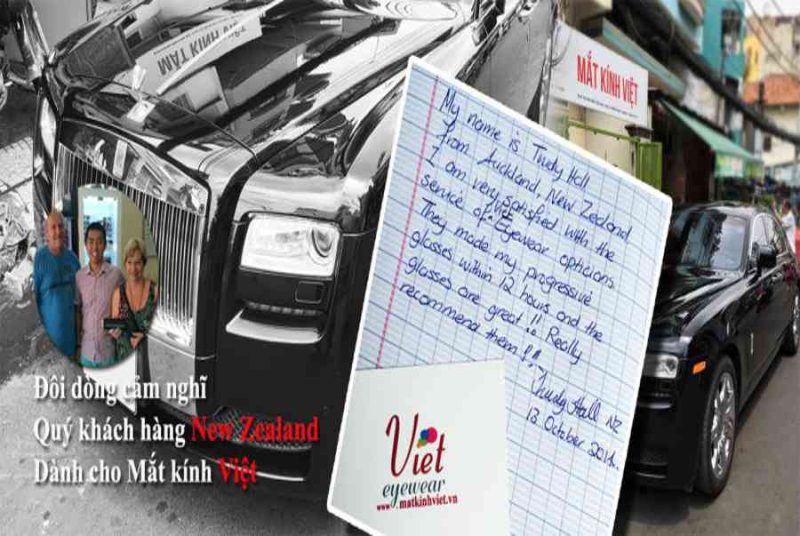 MẮT KÍNH TÂM
MẮT KÍNH VIỆT
My name is Trudy Hall
from Auckland, New Zealand
I am very satisfied with the
service of Viet Eyewear opticians
They made my progressive
glasses within 12 hours and the
glasses are great!! Really
recommend them!!
Trudy Hall NZ
13 October 2014.
Viet
eyewear
www.matkinhviet.vn
Đôi dòng cảm nghĩ
Quý khách hàng New Zealand
Dành cho Mắt kính Việt